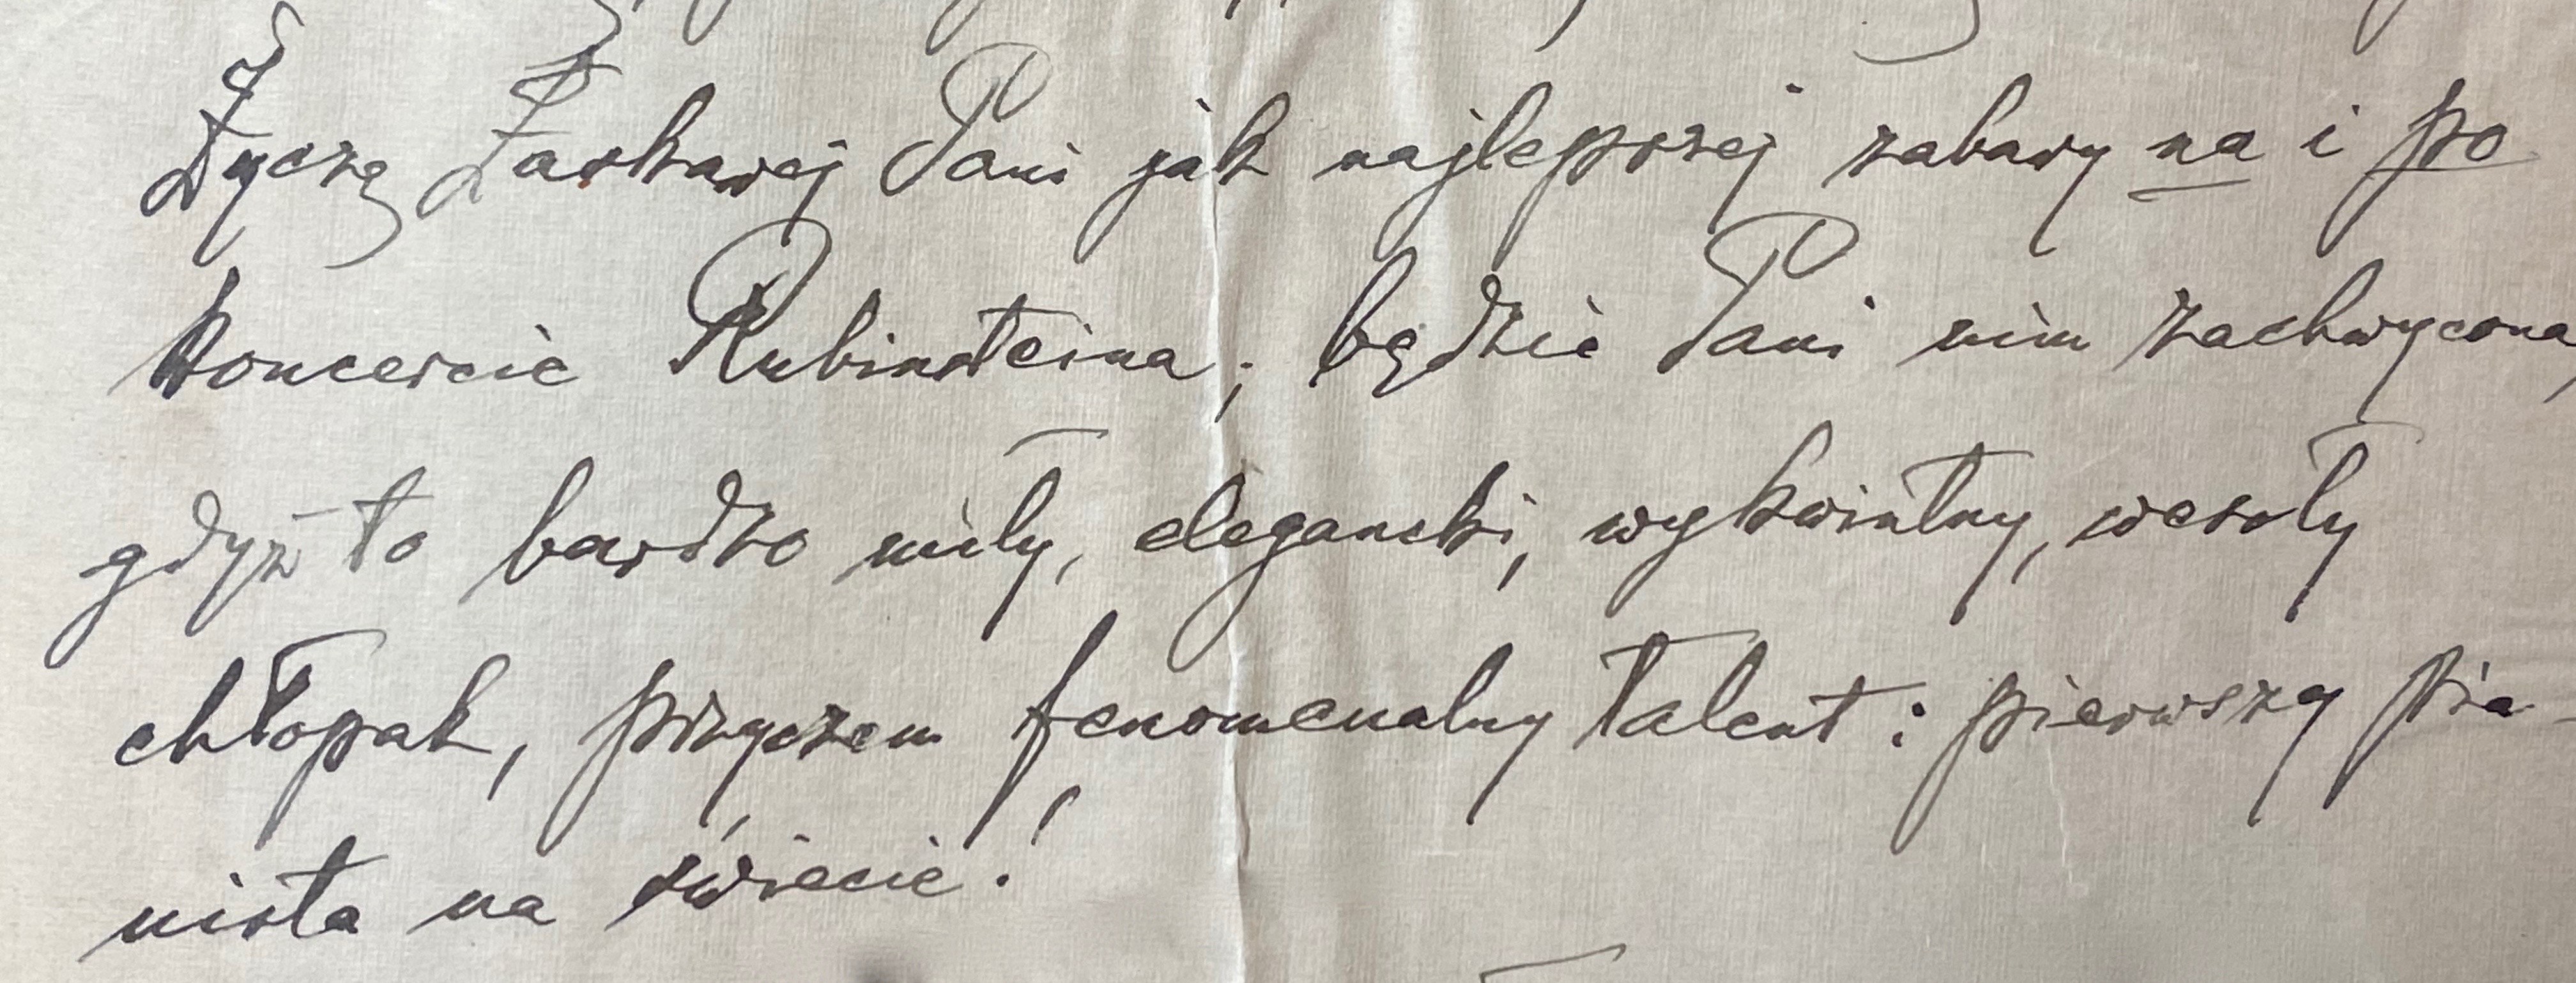 Życzę Łaskawej Pani jak najlepszej zabawy na i po
koncercie Rubinsteina; będzie Pani nim zachwycona,
gdyż to bardzo miły, elegancki, wykwintny, wesoły
chłopak, przyczem fenomenalny talent: pierwszy pia-
nista na świecie!